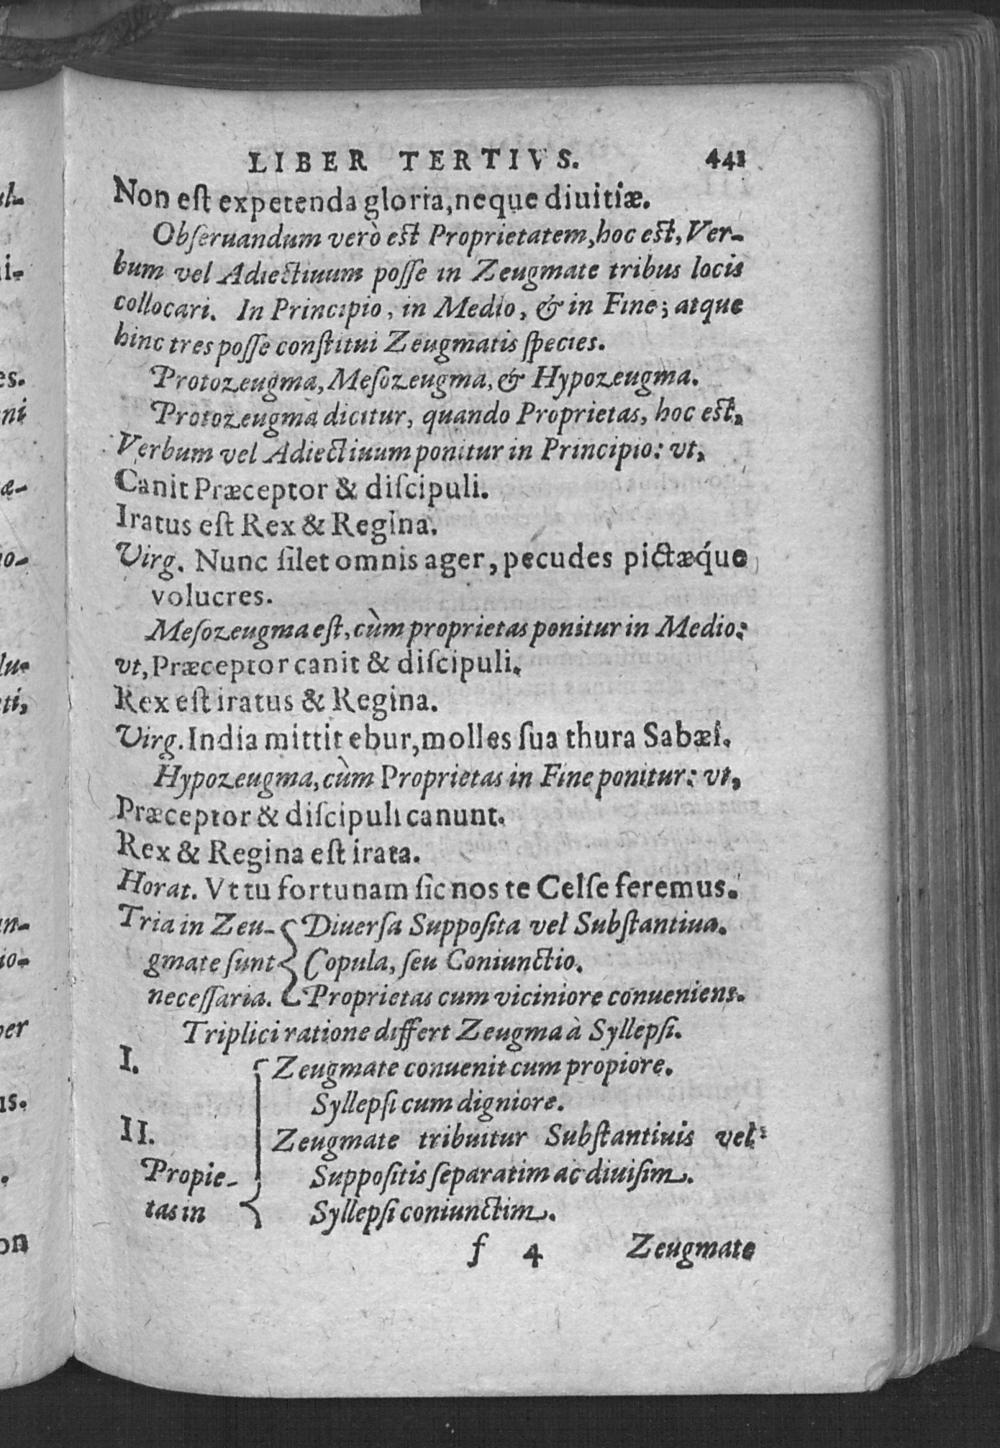 LIBER TERTIVS. 441
Non eſt expetenda gloria, neque diuitiæ.
Obſeruandum verò eſt Proprietatem, hoc eſt, Ver-
bum vel Adiectiuum poſſe in Zeugmate tribus locis
collocari. In Principio, in Medio, & in Fine; atque
hinc tres poſſe conſtitui Zeugmatis ſpecies.
Protozeugma, Meſozeugma, & Hypozeugma.
Protozeugma dicitur, quando Proprietas, hoc eſt,
Verbum vel Adiectiuum ponitur in Principio: vt,
Canit Præceptor & diſcipuli.
Iratus eſt Rex & Regina.
Virg. Nunc ſilet omnis ager, pecudes pictæq́ue
volucres.
Meſozeugma eſt, cùm proprietas ponitur in Medio:
vt, Præceptor canit & diſcipuli.
Rex eſt iratus & Regina.
Virg. India mittit ebur, molles ſua thura Sabæi.
Hypozeugma, cùm Proprietas in Fine ponitur: vt,
Præceptor & diſcipuli canunt.
Rex & Regina eſt irata.
Horat. Vt tu fortunam ſic nos te Celſe feremus.
Tria in Zeu- Diuerſa Suppoſita vel Subſtantiua.
gmate ſunt Copula, ſeu Coniunctio.
neceſſaria. Proprietas cum viciniore conueniens.
Triplici ratione differt Zeugma à Syllepſi.
I. Zeugmate conuenit cum propiore.
Syllepſi cum digniore.
II. Zeugmate tribuitur Subſtantiuis vel
Propie- Suppoſitis ſeparatim ac diuiſim.
tas in Syllepſi coniunctim.
f 4 Zeugmate